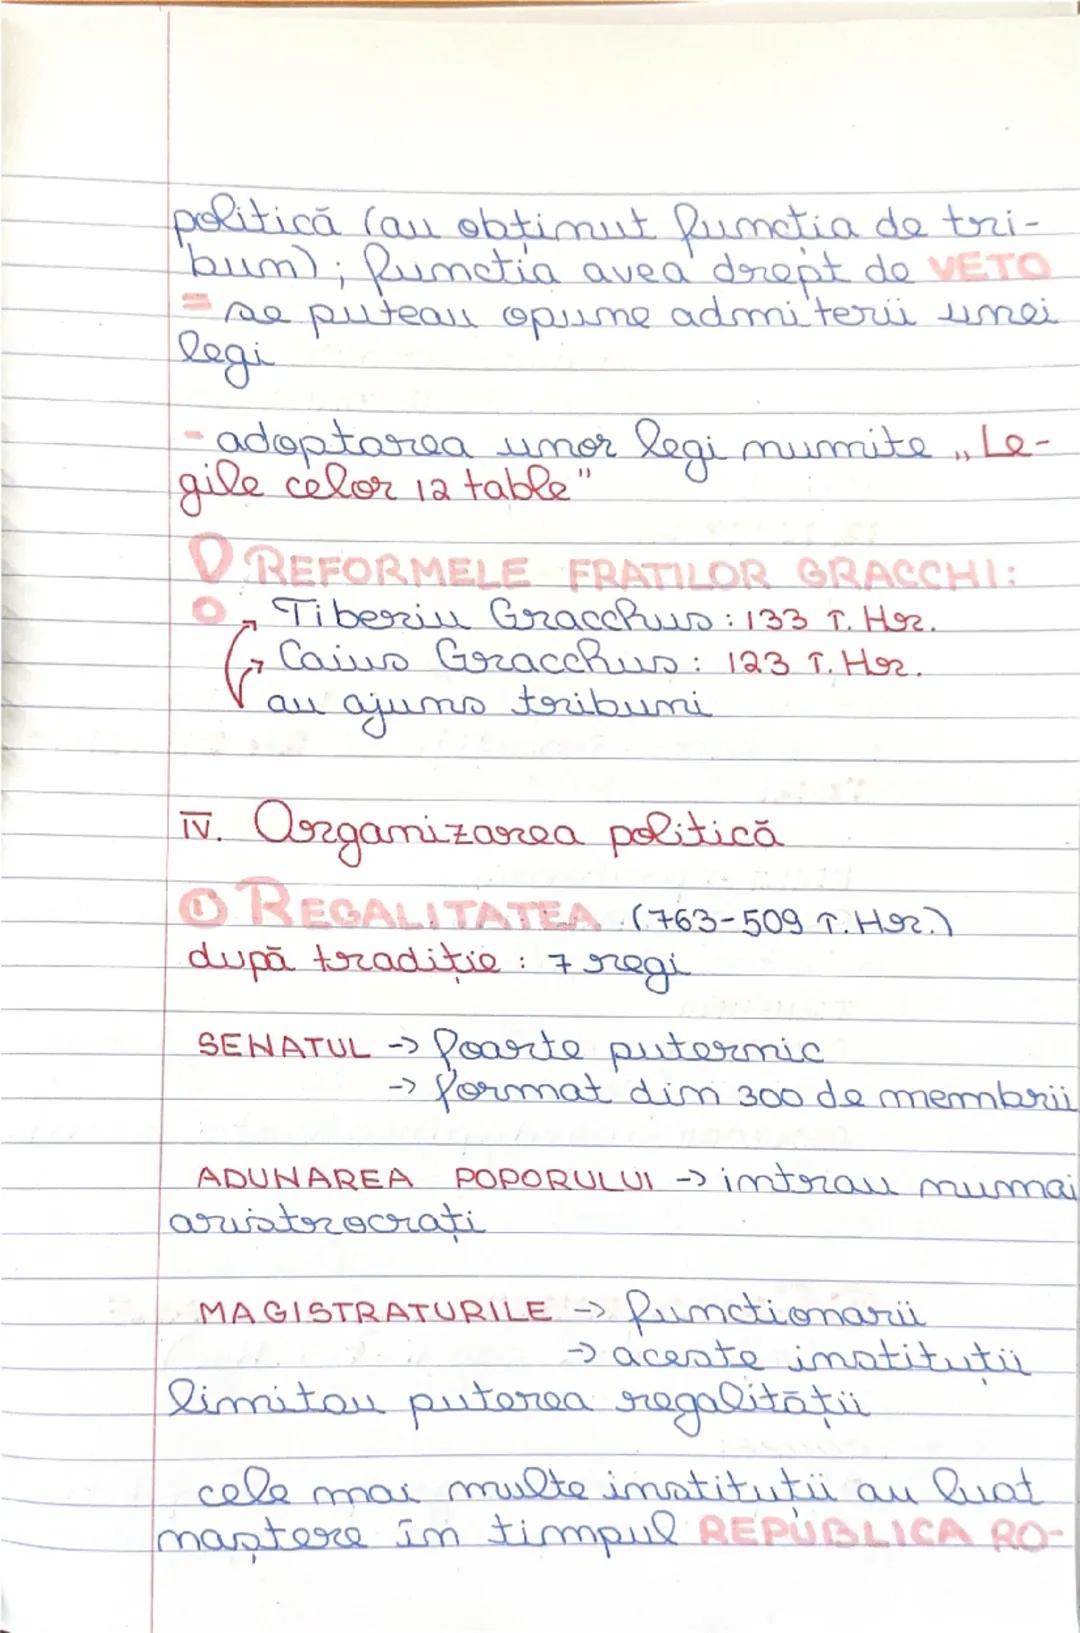 politică (au obținut funcția de tri-
bun); funcția avea drept de VETO
= se puteau opune admiterii unei
legi
- adoptarea unor legi numite „Le-
gile celor 12 table"
REFORMELE FRATILOR GRACCHI:
Tiberiu Gracchus: 133 î. Hr.
Caius Gracchus: 123 î. Hr.
au ajuns tribuni
IV. Organizarea politică
① REGALITATEA (763-509 î. Hr.)
după tradiție: 7 regi
SENATUL -> foarte puternic
-> format din 300 de membrii
ADUNAREA POPORULUI -> intrau numai
aristrocrați
MAGISTRATURILE -> funcționarii
-> aceste instituții
limitau puterea regalității
cele mai multe instituții au luat
naștere în timpul REPUBLICA RO-